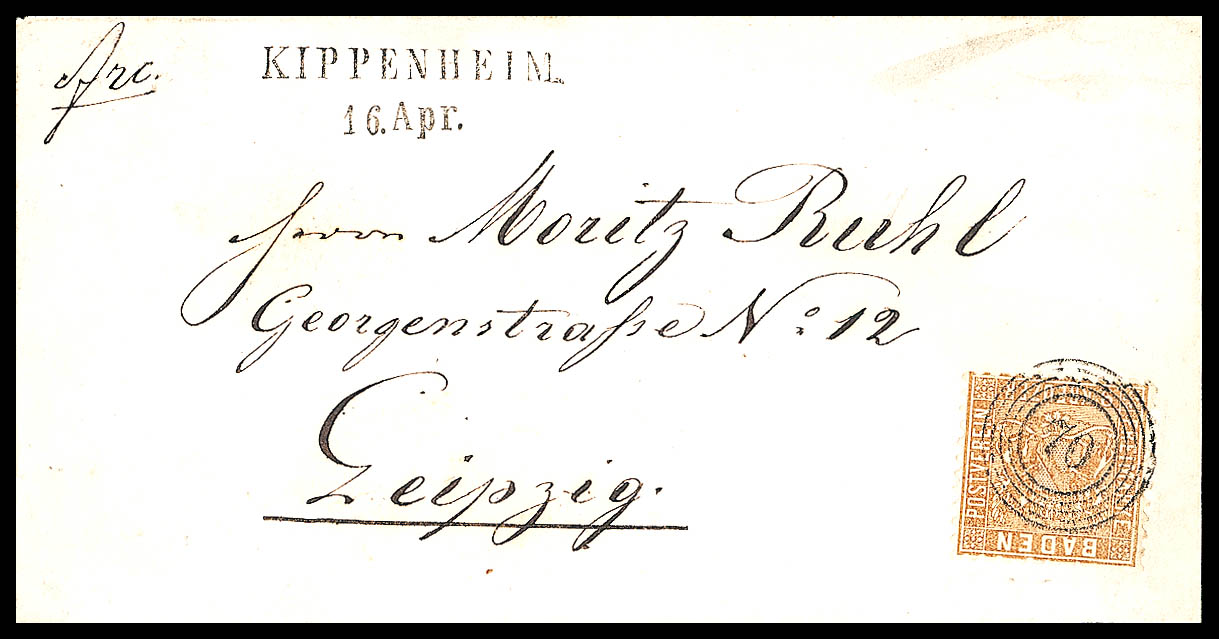 frc.
KIPPENHEIM.
16. Apr.
Herrn Moritz Ruhl
Georgenstraße No: 12
Leipzig.
70
POSTVEREIN
BADEN